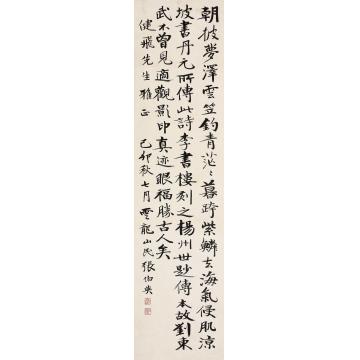 朝披夢澤雲笠釣青茫々暮跨紫鱗去海氣侵肌涼
坡書丹元所傳此詩李書樓刻之楊州世尟傳本故劉東
武不曾見適觀影印真迹眼福勝古人矣
健飛先生雅正
己卯秋七月雲龍山民張伯英